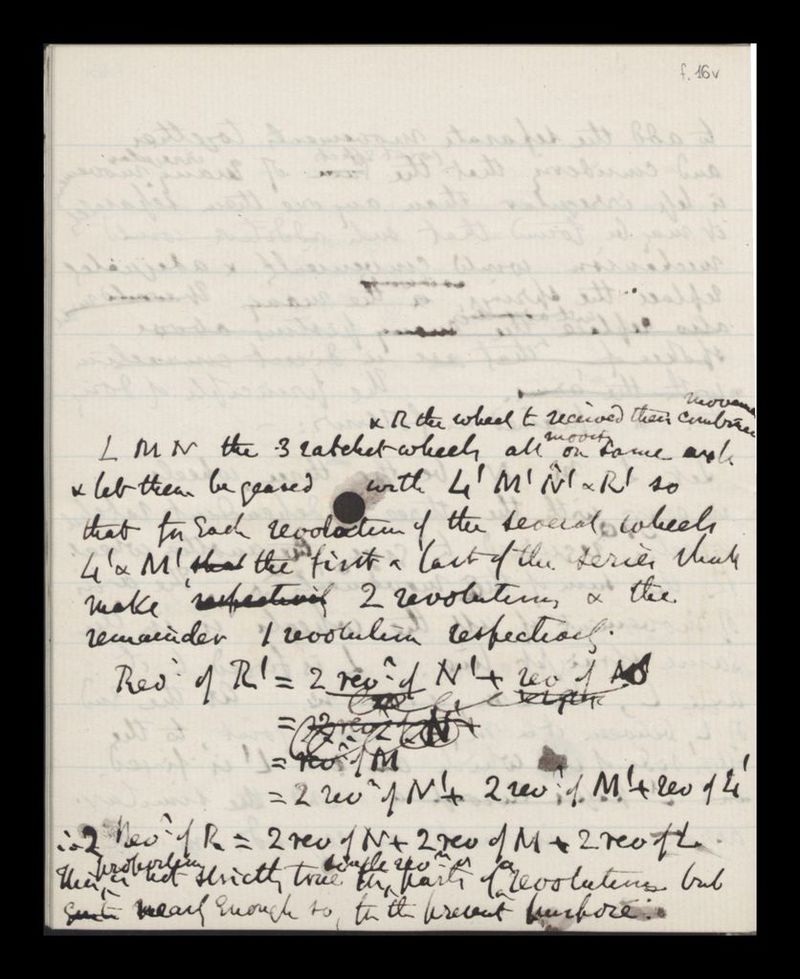 f. 16v
movement
& R the wheel to received their combined
L M N the 3 ratchet wheels all moving on same axle
& let them be geared with L' M' N' & R' so
that for Each revolution of the several wheels
L' & M' that the first & last of the series shall
make respectively 2 revolutions & the
remainder 1 revolution respectively.
Revn of R' = 2 revn of N' + rev of M'
=
= revn of M
= 2 revn of N' + 2 revn of M' + rev of L'
∴ 2 Revn of R = 2 rev of N + 2 rev of M + 2 rev of L.
This proportion is not strictly true for single revns or parts of a revolution but
quite nearly Enough so, for the present purpose.